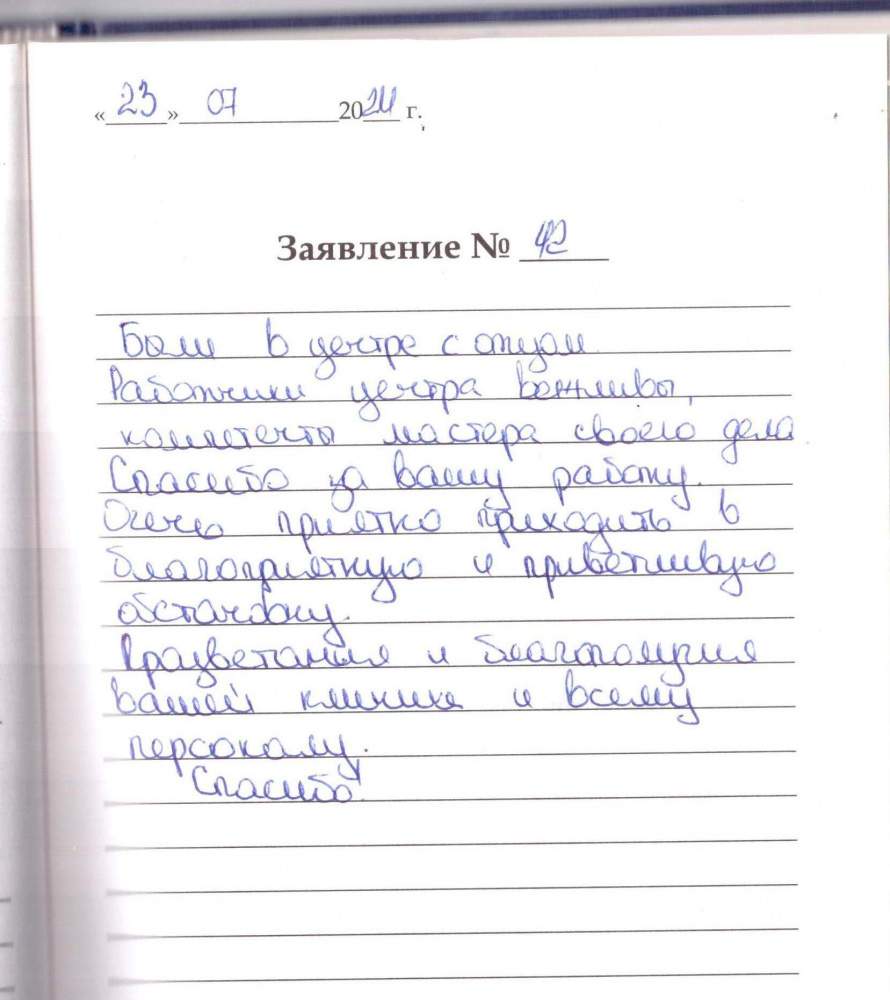 « 23 » 07 2024 г.
Заявление № 42
Были в центре с отцом
Работники центра вежливы,
компетенты мастера своего дела
Спасибо за вашу работу.
Очень приятно приходить в
благоприятную и приветливую
обстановку.
Процветания и благополучия
вашей клинике и всему
персоналу.
Спасибо!